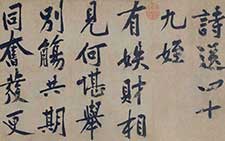 詩送四十
九姪
有姝財相
見何堪舉
別觴共期
同奮發更